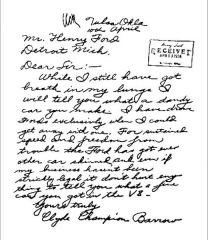 Tulsa Okla
10th April
Mr. Henry Ford
Detroit Mich.
Dear Sir:—
While I still have got
breath in my lungs I
will tell you what a dandy
car you make. I have drove
Fords exclusively when I could
get away with one. For sustained
speed and freedom from
trouble the Ford has got ever
other car skinned and even if
my business hasen't been
strickly legal it don't hurt eny
thing to tell you what a fine
car you got in the V8—
Yours truly
Clyde Champion Barrow
RECEIVED